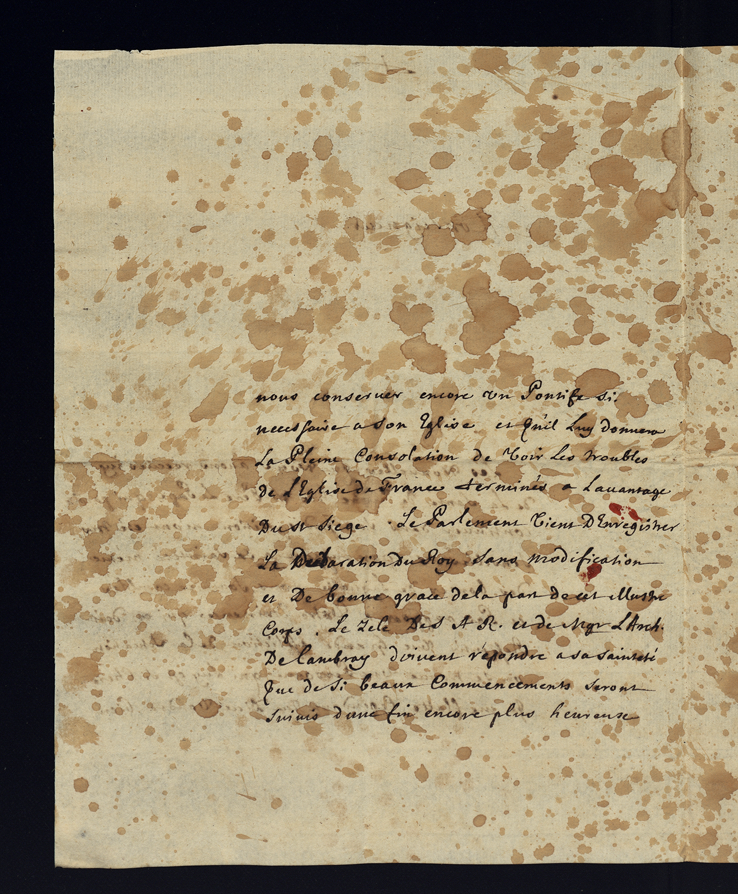 nous conserver encore un Pontife si
necessaire a son Eglise et quil Luy donnera
La Pleine Consolation de Voir Les troubles
de L'Eglise de France terminés a Lavantage
Du st Siege . Le Parlement Vient D'Enregistrer
La Declaration Du Roy sans modification
et De bonne grace dela part de cet Illustre
Corps . Le Zele De S A R. et de Mgr L'Arch.
De Cambray doivent repondre a sa sainteté
Que de si beaux Commencements seront
suivis d'une fin encore plus heureuse